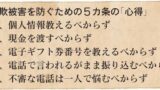 欺被害を防ぐための5カ条の「心得」
個人情報教えるべからず
現金を渡すべからず
電子ギフト券番号を教えるべからず
電話で言われるがまま振り込むべからず
不審な電話は一人で悩むべからず